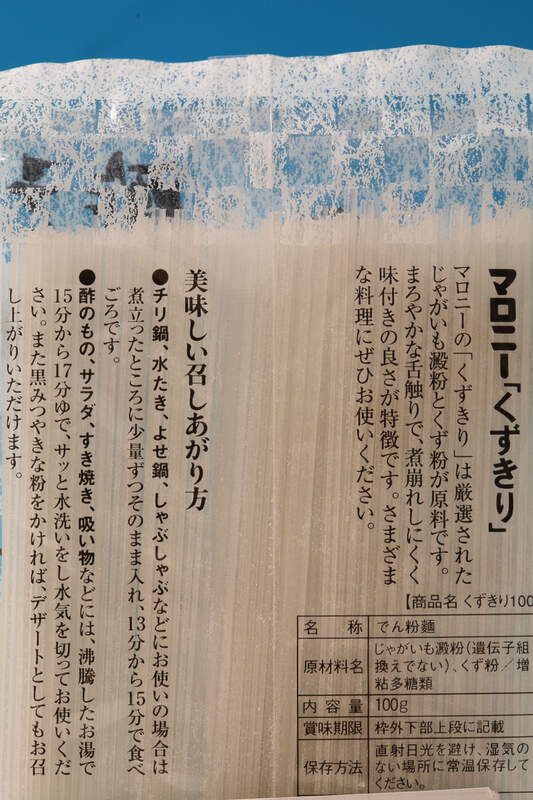 マロニー「くずきり」
マロニーの「くずきり」は厳選された
じゃがいも澱粉とくず粉が原料です。
まろやかな舌触りで、煮崩れしにくく
味付きの良さが特徴です。さまざま
な料理にぜひお使いください。
美味しい召しあがり方
●チリ鍋、水たき、よせ鍋、しゃぶしゃぶなどにお使いの場合は
煮立ったところに少量ずつそのまま入れ、13分から15分で食べ
ごろです。
●酢のもの、サラダ、すき焼き、吸い物などには、沸騰したお湯で
15分から17分ゆで、サッと水洗いをし水気を切ってお使いくだ
さい。また黒みつやきな粉をかければ、デザートとしてもお召
し上がりいただけます。
【商品名 くずきり100
名称 でん粉麺
原材料名 じゃがいも澱粉(遺伝子組
換えでない)、くず粉/増
粘多糖類
内容量 100g
賞味期限 枠外下部上段に記載
保存方法 直射日光を避け、湿気の
ない場所に常温保存して
ください。